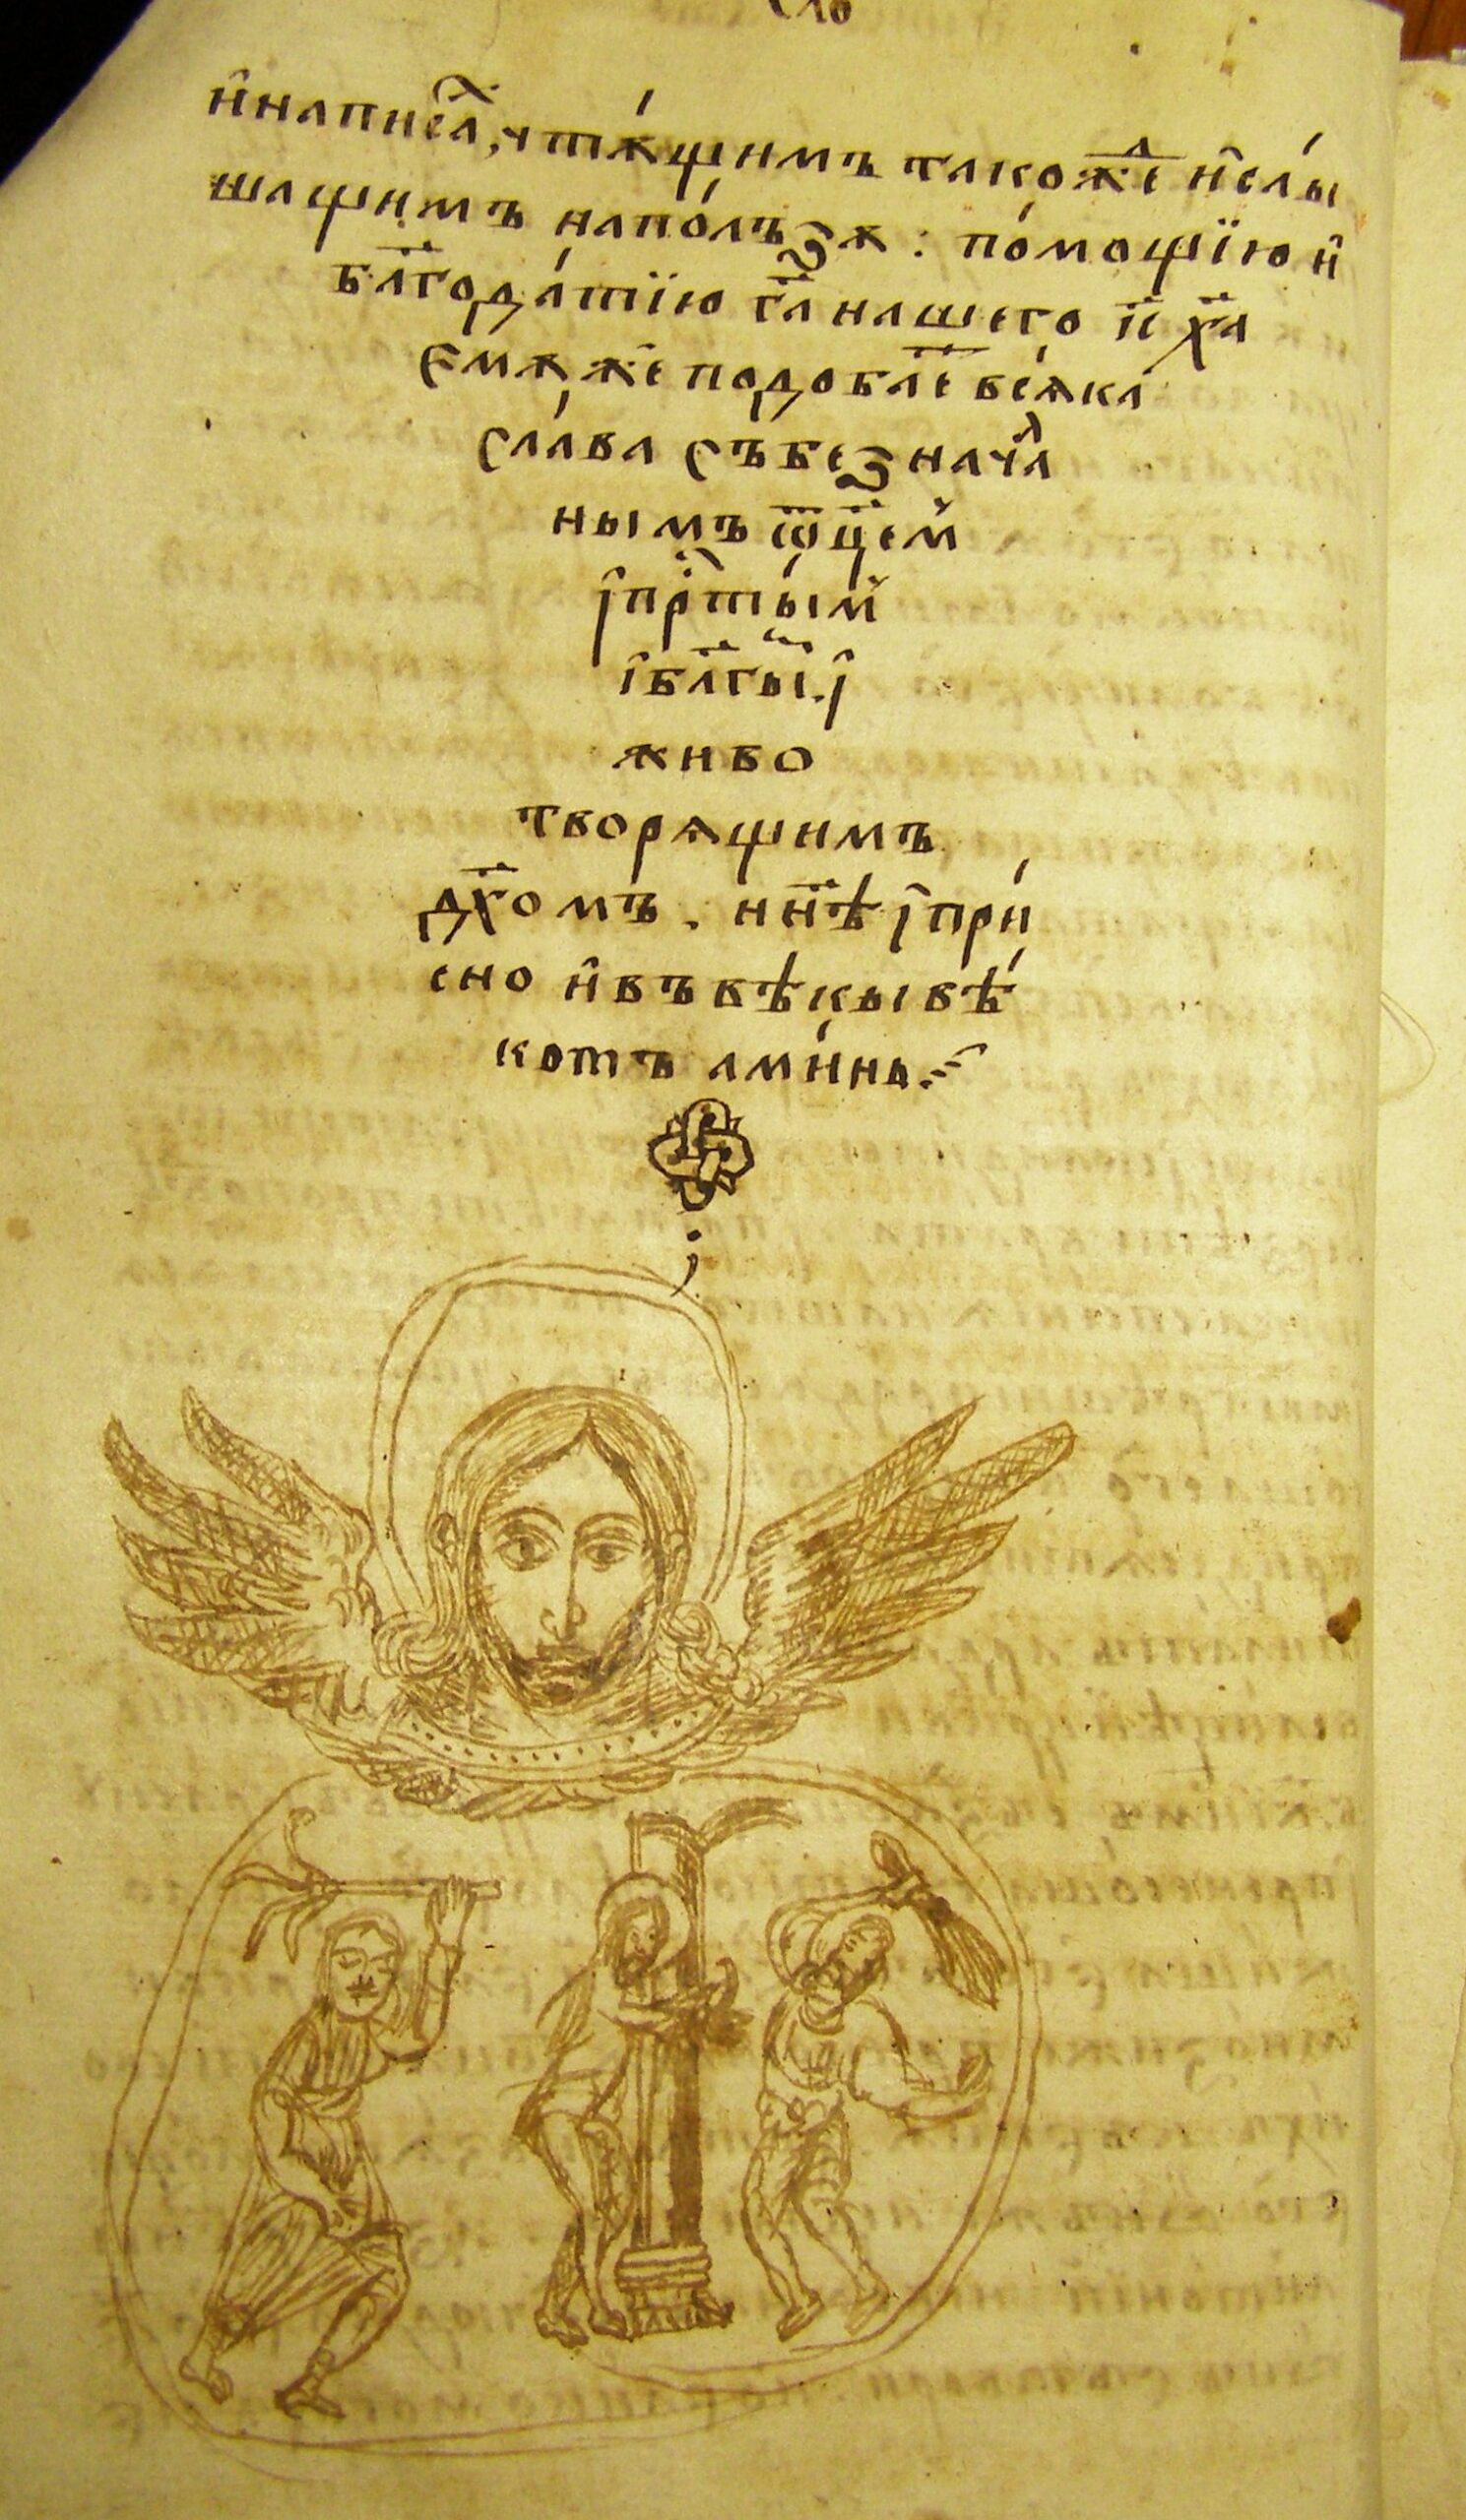 и҆написа́хⷧ, чтѫ́щимъ такоⷤѫⷣе и҆слы́
шащимъ напо́лъꙁѫ : по́мощїю и҆
бл҃года́тїю га҃ нашего і҃ ха҃
Ємѫже подобае҃ всѣ́ка
сла́ва събеꙁначаⷧ
нымъ ѿц҃емⸯ
і҆прⷭ҇ты́имⸯ
і҆бл҃гыⷨ. і҆
живо
творѧщимъ
дх҃омъ . нн҃ѣ і҆при́
сно и҆въвѣкывѣ́
комъ ами́нь